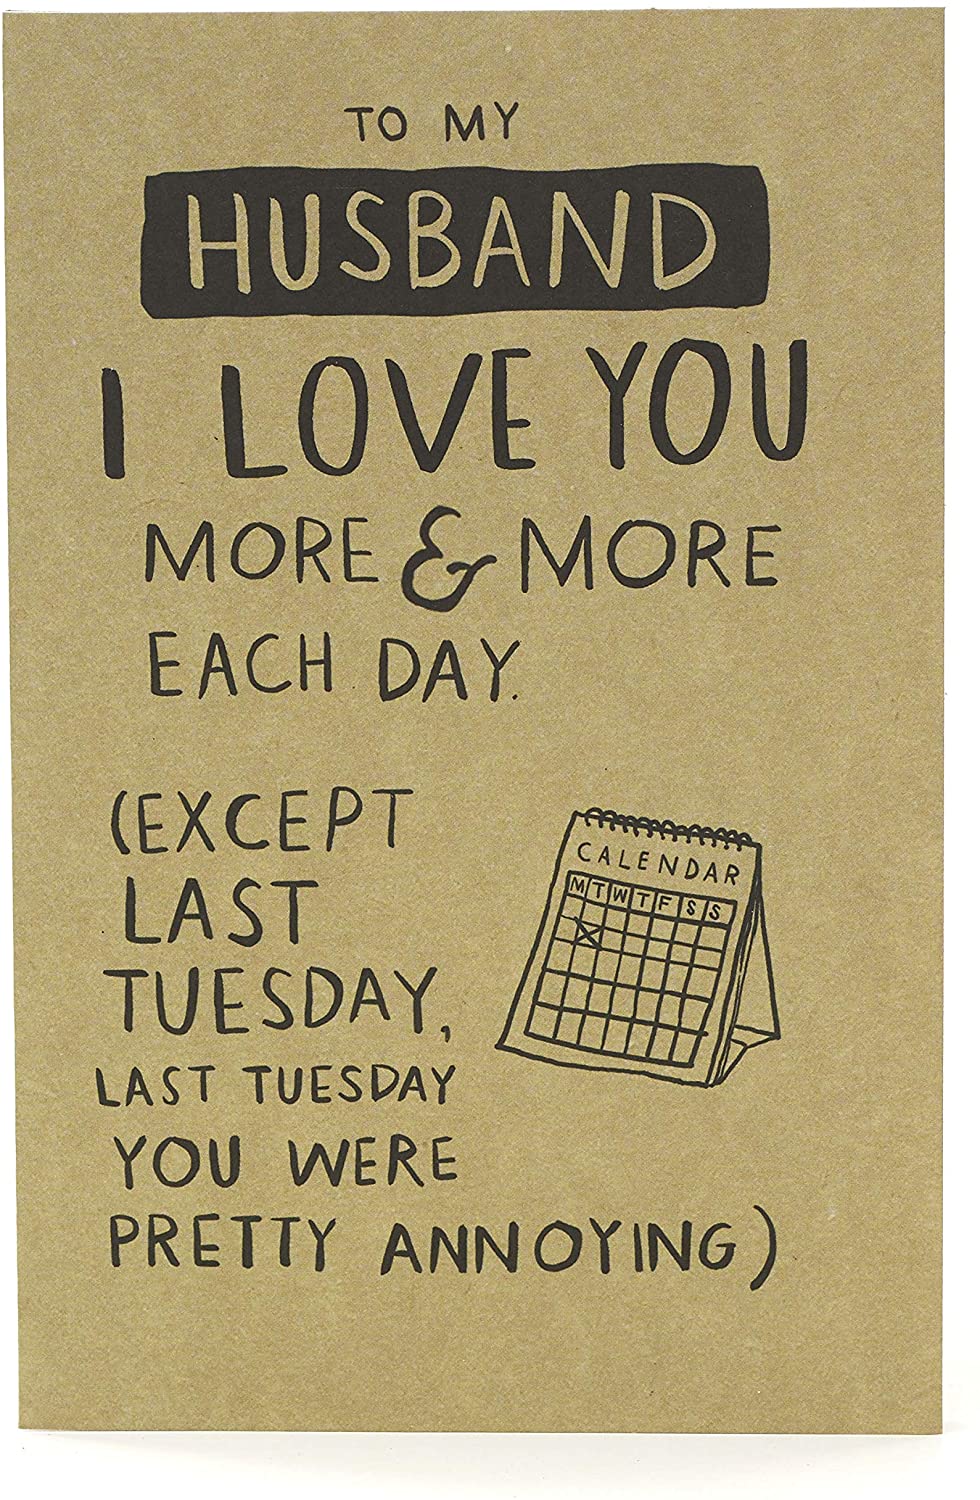 TO MY
HUSBAND
I LOVE YOU
MORE & MORE
EACH DAY.
(EXCEPT
LAST
TUESDAY,
LAST TUESDAY
YOU WERE
PRETTY ANNOYING)
CALENDAR
M T W T F S S